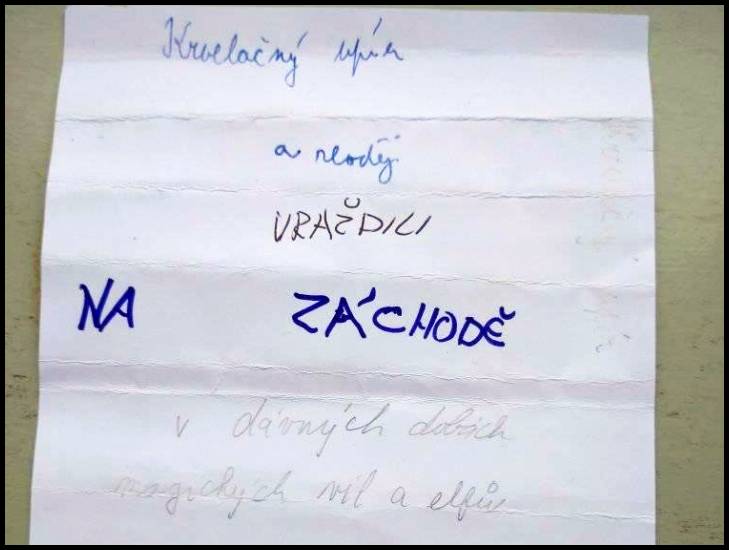 Krvelačný upír
a zloděj
VRAŽDILI
NA ZÁCHODĚ
v dávných dobách
magických víl a elfů